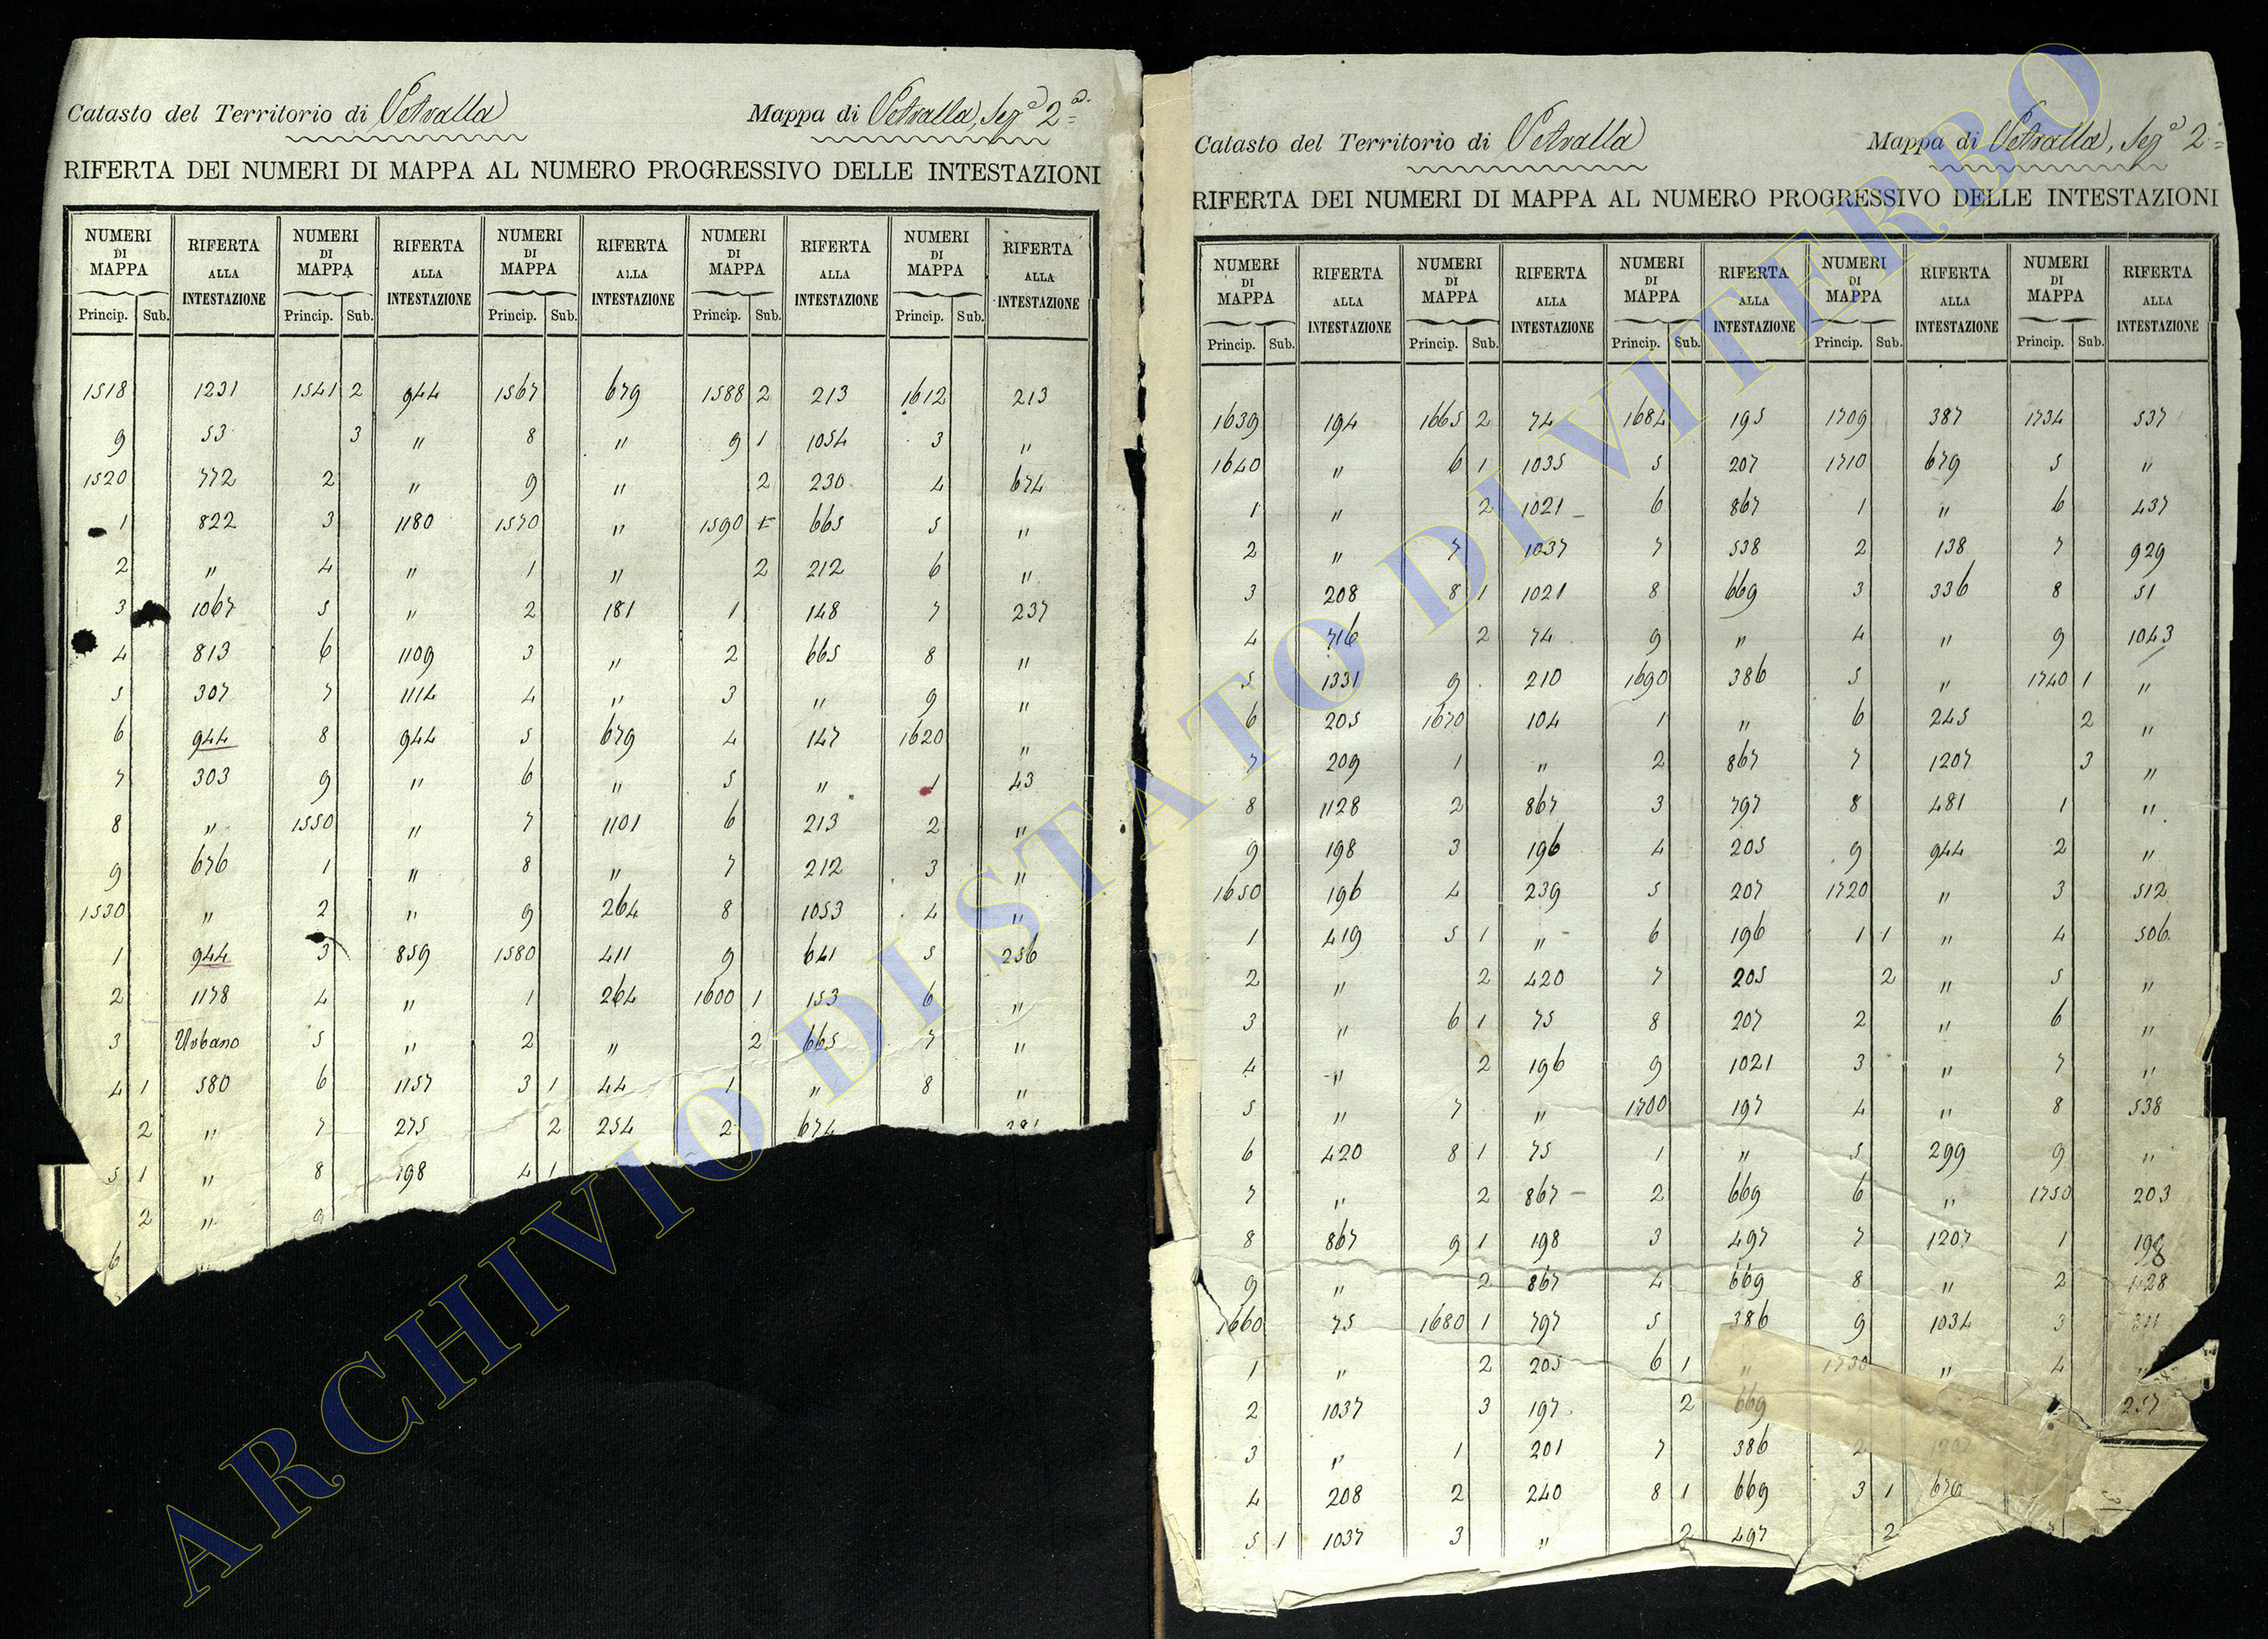 Catasto del Territorio di Vetralla Mappa di Vetralla, Sez.ª 2.ª
RIFERTA DEI NUMERI DI MAPPA AL NUMERO PROGRESSIVO DELLE INTESTAZIONI
NUMERI DI MAPPA RIFERTA ALLA INTESTAZIONE NUMERI DI MAPPA RIFERTA ALLA INTESTAZIONE NUMERI DI MAPPA RIFERTA ALLA INTESTAZIONE NUMERI DI MAPPA RIFERTA ALLA INTESTAZIONE NUMERI DI MAPPA RIFERTA ALLA INTESTAZIONE
Princip. Sub. Princip. Sub. Princip. Sub. Princip. Sub. Princip. Sub.
1518 1231 1541 2 944 1567 679 1588 2 213 1612 213
9 53 3 " 8 " 9 1 1054 3 "
1520 772 2 " 9 " 2 230 4 674
1 822 3 1180 1570 " 1590 1 665 5 "
2 " 4 " 1 " 2 212 6 "
3 1067 5 " 2 181 1 148 7 237
4 813 6 1109 3 " 2 665 8 "
5 307 7 1114 4 " 3 " 9 "
6 944 8 944 5 679 4 147 1620 "
7 303 9 " 6 " 5 " 1 43
8 " 1550 " 7 1101 6 213 2 "
9 676 1 " 8 " 7 212 3 "
1530 " 2 " 9 264 8 1053 4 "
1 944 3 859 1580 411 9 641 5 256
2 1178 4 " 1 264 1600 1 153 6 "
3 Urbano 5 " 2 " 2 665 7 "
4 1 580 6 1157 3 1 44 1 " 8 "
2 " 7 275 2 254 2 674
5 1 " 8 798 4 1
2 " 9
6 "
Catasto del Territorio di Vetralla Mappa di Vetralla, Sez.ª 2.ª
RIFERTA DEI NUMERI DI MAPPA AL NUMERO PROGRESSIVO DELLE INTESTAZIONI
NUMERI DI MAPPA RIFERTA ALLA INTESTAZIONE NUMERI DI MAPPA RIFERTA ALLA INTESTAZIONE NUMERI DI MAPPA RIFERTA ALLA INTESTAZIONE NUMERI DI MAPPA RIFERTA ALLA INTESTAZIONE NUMERI DI MAPPA RIFERTA ALLA INTESTAZIONE
Princip. Sub. Princip. Sub. Princip. Sub. Princip. Sub. Princip. Sub.
1639 194 1665 2 74 1684 195 1709 387 1734 537
1640 " 6 1 1035 5 207 1710 679 5 "
1 " 2 1021 6 867 1 " 6 437
2 " 7 1037 7 538 2 138 7 929
3 208 8 1 1021 8 669 3 336 8 51
4 716 2 74 9 " 4 " 9 1043
5 1331 9 210 1690 386 5 " 1740 1 "
6 205 1670 104 1 " 6 245 2 "
7 209 1 " 2 867 7 1207 3 "
8 1128 2 867 3 797 8 481 1 "
9 198 3 196 4 205 9 944 2 "
1650 196 4 239 5 207 1720 " 3 512
1 419 5 1 " 6 196 1 1 " 4 506
2 " 2 420 7 205 2 " 5 "
3 " 6 1 75 8 207 2 " 6 "
4 " 2 196 9 1021 3 " 7 "
5 " 7 " 1700 197 4 " 8 538
6 420 8 1 75 1 " 5 299 9 "
7 " 2 867 2 669 6 " 1750 203
8 867 9 1 198 3 497 7 1207 1 198
9 " 2 867 4 669 8 " 2 1128
1660 75 1680 1 797 5 386 9 1034 3
1 " 2 205 6 1 " 1730 " 4 "
2 1037 3 197 2 669 257
3 " 1 201 7 386 2
4 208 2 240 8 1 669 3 1 676
5 1 1037 3 " 2 497 2
ARCHIVIO DI STATO DI VITERBO